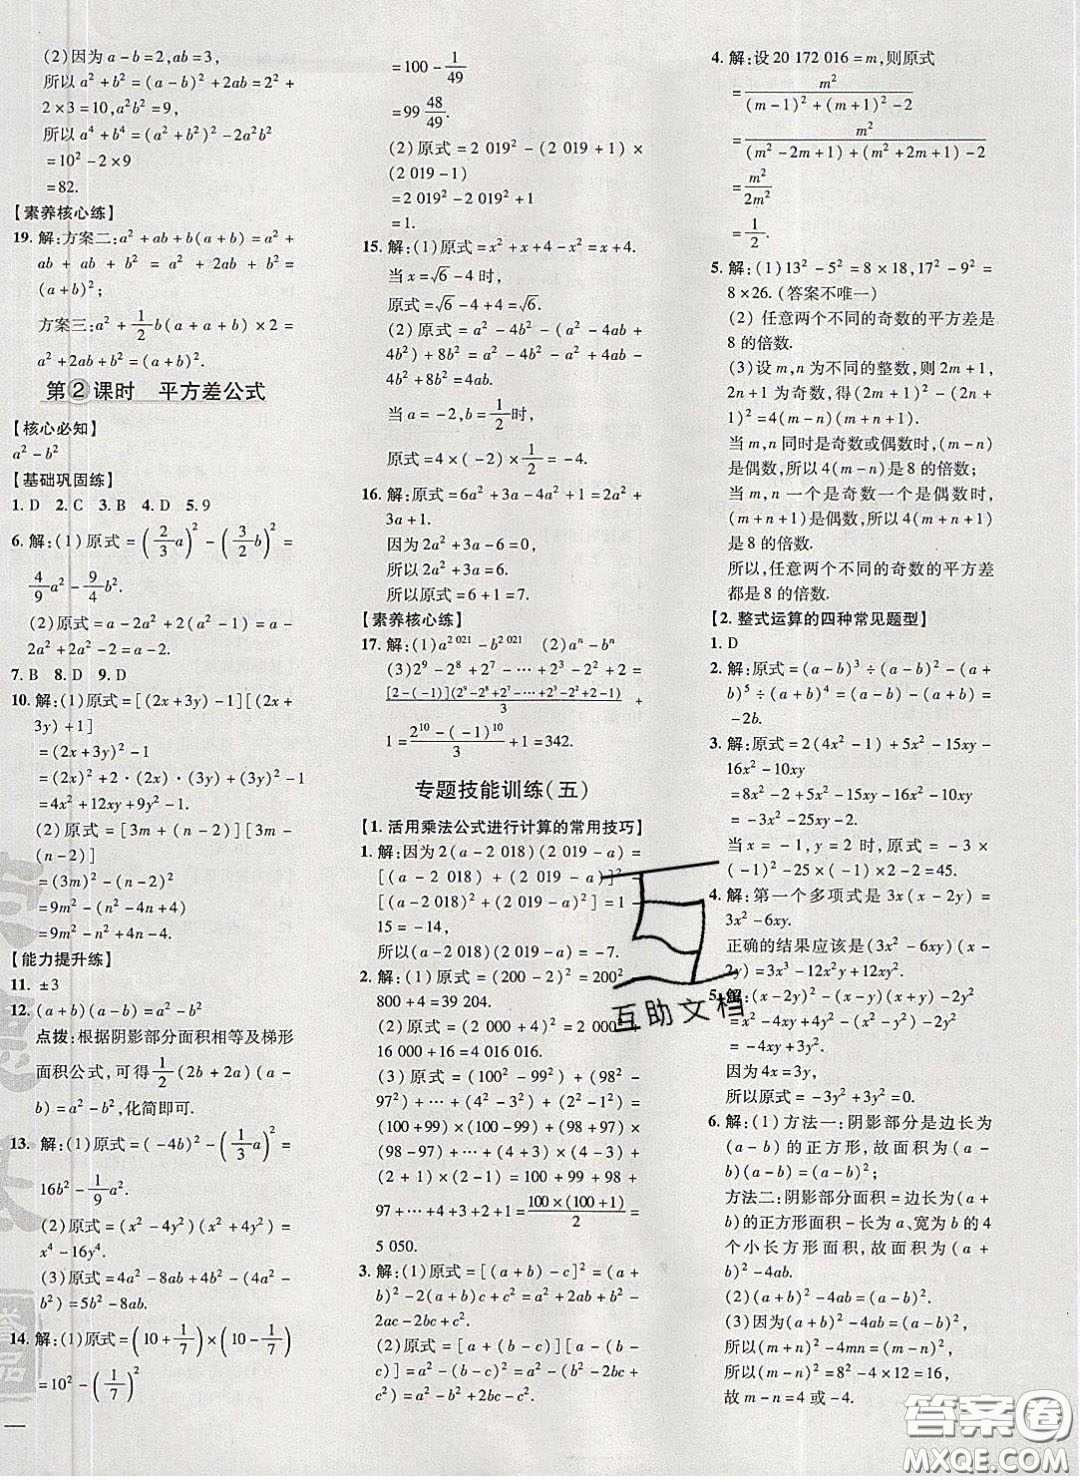 (2)因为 a-b=2,ab=3,
所以 a²+b²=(a-b)²+2ab=2²+
2×3=10,a²b²=9,
所以 a⁴+b⁴=(a²+b²)²-2a²b²
=10²-2×9
=82.
【素养核心练】
19. 解:方案二:a²+ab+b(a+b)=a²+
ab+ab+b²=a²+2ab+b²=
(a+b)²;
方案三:a²+1/2 b(a+a+b)×2=
a²+2ab+b²=(a+b)².
第②课时 平方差公式
【核心必知】
a²-b²
【基础巩固练】
1. D 2. C 3. B 4. D 5. 9
6. 解:(1)原式=(2/3 a)²-(3/2 b)²=
4/9 a²-9/4 b².
(2)原式=a-2a²+2-4a-a+
2a²+2a²-a=2a²-5a+2.
7. B 8. D 9. D
10. 解:(1)原式=[(2x+3y)-1][(2x+
3y)+1]
=(2x+3y)²-1
=(2x)²+2·(2x)·(3y)+(3y)²-1
=4x²+12xy+9y²-1.
(2)原式=[3m+(n-2)][3m-
(n-2)]
=(3m)²-(n-2)²
=9m²-(n²-4n+4)
=9m²-n²+4n-4.
【能力提升练】
11. ±3
12. (a+b)(a-b)=a²-b²
点拨:根据阴影部分面积相等及梯形
面积公式,可得1/2(2b+2a)(a-
b)=a²-b²,化简即可.
13. 解:(1)原式=(-4b)²-(1/3 a)²=
16b²-1/9 a².
(2)原式=(x²-4y²)(x²+4y²)=
x⁴-16y⁴.
(3)原式=4a²-8ab+4b²-(4a²-
b²)=5b²-8ab.
14. 解:(1)原式=(10+1/7)×(10-1/7)
=10²-(1/7)²
=100-1/49
=99 48/49.
(2)原式=2 019²-(2 019+1)×
(2 019-1)
=2 019²-2 019²+1
=1.
15. 解:(1)原式=x²+x+4-x²=x+4.
当 x=√6-4 时,
原式=√6-4+4=√6.
(2)原式=a²-4b²-(a²-4ab+
4b²)+8b²=a²-4b²-a²+4ab-
4b²+8b²=4ab.
当 a=-2,b=1/2时,
原式=4×(-2)×1/2=-4.
16. 解:原式=6a²+3a-4a²+1=2a²+
3a+1.
因为 2a²+3a-6=0,
所以 2a²+3a=6.
所以原式=6+1=7.
【素养核心练】
17. 解:(1)a²⁰²¹-b²⁰²¹ (2)aⁿ-bⁿ
(3)2⁹-2⁸+2⁷-…+2³-2²+2=
[2-(-1)](2⁹-2⁸+2⁷-…+2³-2²+2-1)/3 +
1=(2¹⁰-(-1)¹⁰)/3+1=342.
专题技能训练(五)
【1. 活用乘法公式进行计算的常用技巧】
1. 解:因为 2(a-2 018)(2 019-a)=
[(a-2 018)+(2 019-a)]²-
[(a-2 018)²+(2 019-a)²]=1-
15=-14,
所以(a-2 018)(2 019-a)=-7.
2. 解:(1)原式=(200-2)²=200²-
800+4=39 204.
(2)原式=(2 000+4)²=2 000²+
16 000+16=4 016 016.
(3)原式=(100²-99²)+(98²-
97²)+…+(4²-3²)+(2²-1²)=
(100+99)×(100-99)+(98+97)×
(98-97)+…+(4+3)×(4-3)+
(2+1)×(2-1)=100+99+98+
97+…+4+3+2+1=100×(100+1)/2=
5 050.
3. 解:(1)原式=[(a+b)-c]²=(a+
b)²-2(a+b)c+c²=a²+2ab+b²-
2ac-2bc+c².
(2)原式=[a+(b-c)][a-(b-
c)]=a²-(b-c)²=a²-(b²-2bc+
c²)=a²-b²+2bc-c².
4. 解:设 20 172 016=m,则原式
=m²/((m-1)²+(m+1)²-2)
=m²/((m²-2m+1)+(m²+2m+1)-2)
=m²/2m²
=1/2.
5. 解:(1)13²-5²=8×18,17²-9²=
8×26.(答案不唯一)
(2)任意两个不同的奇数的平方差是
8 的倍数.
(3)设 m,n 为不同的整数,则 2m+1,
2n+1 为奇数,得(2m+1)²-(2n+
1)²=4(m-n)(m+n+1).
当 m,n 同时是奇数或偶数时,(m-n)
是偶数,所以 4(m-n)是 8 的倍数;
当 m,n 一个是奇数一个是偶数时,
(m+n+1)是偶数,所以 4(m+n+1)
是 8 的倍数.
所以,任意两个不同的奇数的平方差
都是 8 的倍数.
【2. 整式运算的四种常见题型】
1. D
2. 解:原式=(a-b)³÷(a-b)²-(a+
b)⁵÷(a+b)⁴=(a-b)-(a+b)=
-2b.
3. 解:原式=2(4x²-1)+5x²-15xy-
16x²-10xy
=8x²-2+5x²-15xy-16x²-10xy
=-3x²-25xy-2.
当 x=-1,y=2 时,原式=-3×
(-1)²-25×(-1)×2-2=45.
4. 解:第一个多项式是 3x(x-2y)=
3x²-6xy.
正确的结果应该是(3x²-6xy)(x-
2y)=3x³-12x²y+12xy².
5. 解:(x-2y)²-(x-y)(x+y)-5y²
=x²-4xy+4y²-x²+y²-5y²
=-4xy,
因为 4x=3y,
所以原式=-3y²+3y²=0.
6. 解:(1)方法一:阴影部分是边长为
(a-b)的正方形,故面积=(a-
b)(a-b)=(a-b)²;
方法二:阴影部分面积=边长为(a+
b)的正方形面积-长为 a、宽为 b 的 4
个小长方形面积,故面积=(a+
b)²-4ab.
(2)(a-b)²=(a+b)²-4ab.
(3)因为(m-n)²=(m+n)²-4mn,
所以(m+n)²-4mn=(m-n)²,
所以(m-n)²=8²-4×12=16,
故 m-n=4 或-4.
互助文档
答案圈
MXQE.COM